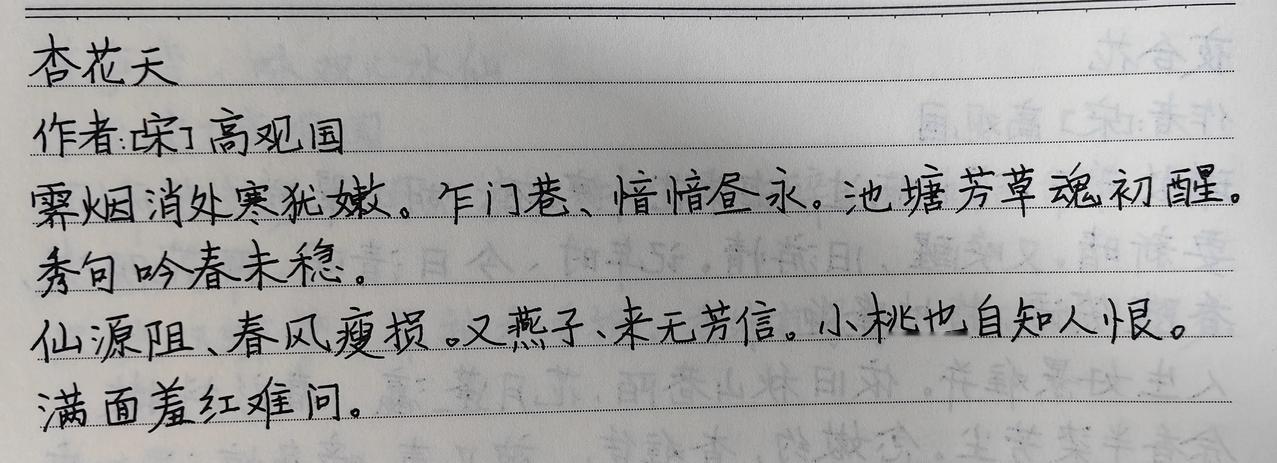 杏花天
作者:[宋]高观国
霁烟消处寒犹嫩。乍门巷、愔愔昼永。池塘芳草魂初醒。
秀句吟春未稳。
仙源阻、春风瘦损。又燕子、来无芳信。小桃也自知人恨。
满面羞红难问。